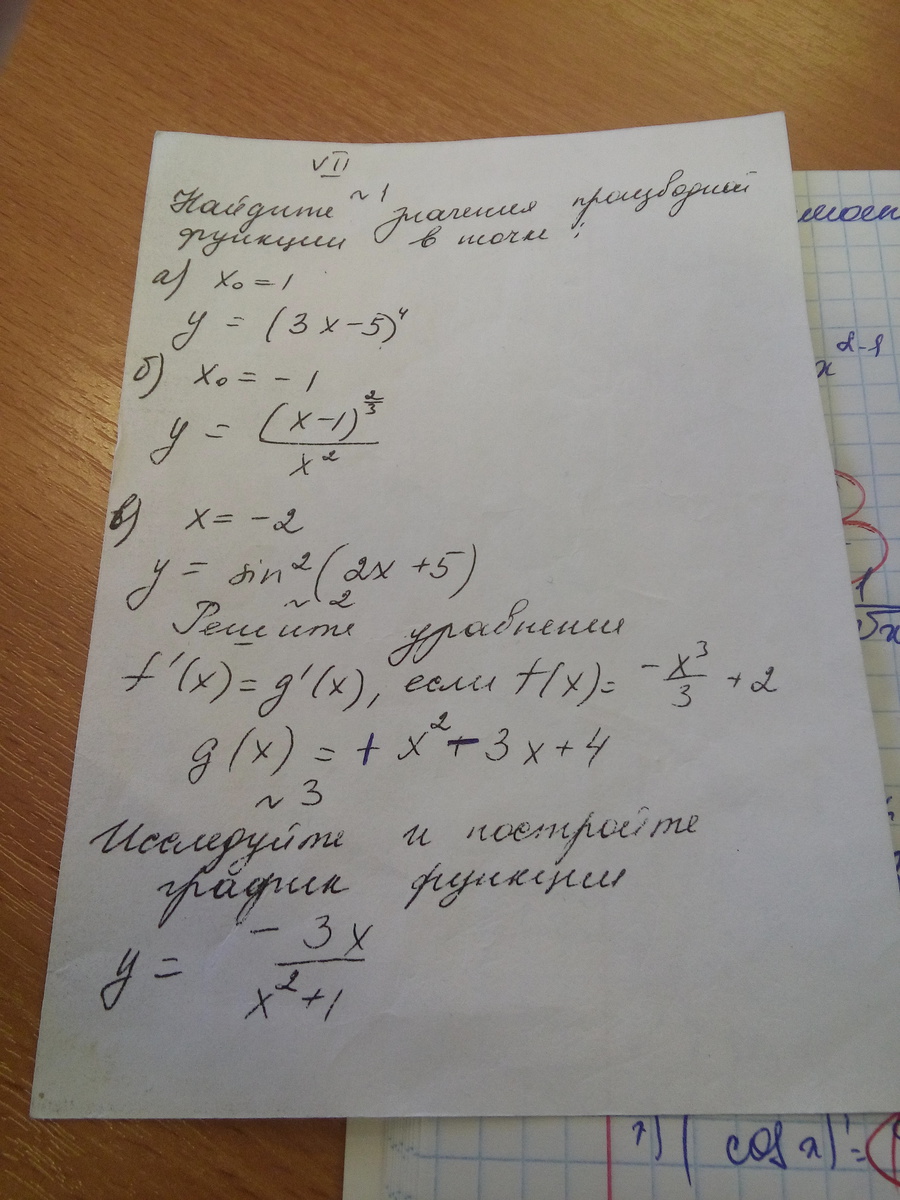 VII
~ 1
Найдите значения производной
функции в точке:
а) x₀ = 1
y = (3x-5)⁴
б) x₀ = -1
y = (x-1)^(2/3) / x²
в) x = -2
y = sin²(2x+5)
~ 2
Решите уравнение
f'(x) = g'(x), если f(x) = -x³/3 + 2
g(x) = + x² - 3x + 4
~ 3
Исследуйте и постройте
график функции
y = -3x / x²+1
x²⁻¹
1
√x
(cos x)' =